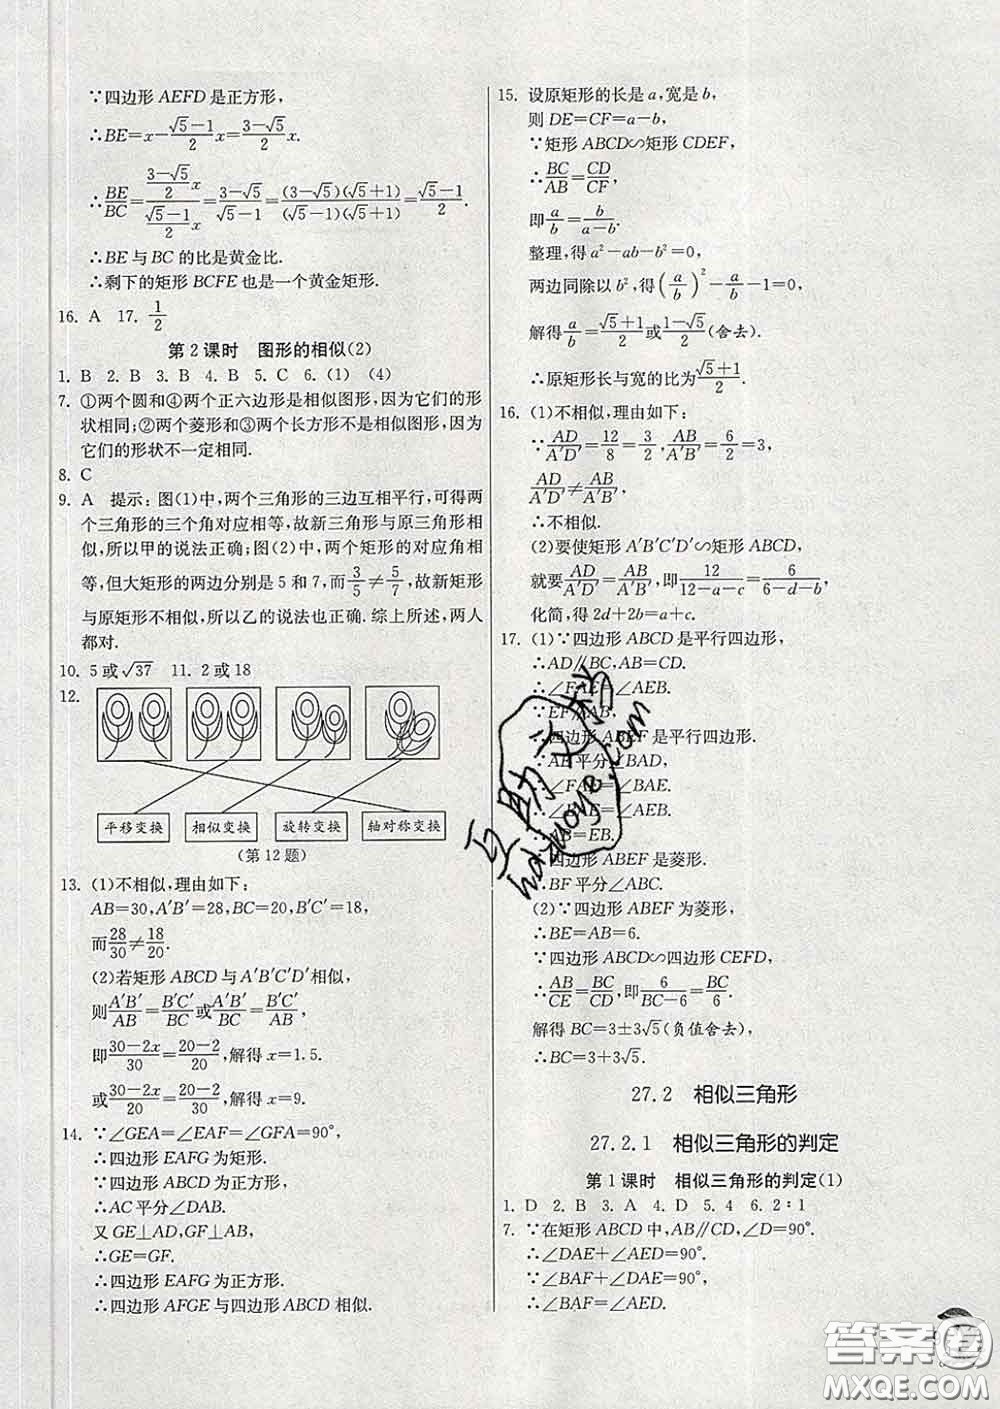 ∵四边形 AEFD 是正方形,
∴BE=x-\frac{\sqrt{5}-1}{2}x=\frac{3-\sqrt{5}}{2}x.
∴\frac{BE}{BC}=\frac{\frac{3-\sqrt{5}}{2}x}{\frac{\sqrt{5}-1}{2}x}=\frac{3-\sqrt{5}}{\sqrt{5}-1}=\frac{(3-\sqrt{5})(\sqrt{5}+1)}{(\sqrt{5}-1)(\sqrt{5}+1)}=\frac{\sqrt{5}-1}{2}.
∴BE 与 BC 的比是黄金比.
∴剩下的矩形 BCFE 也是一个黄金矩形.
16. A 17. \frac{1}{2}
第 2 课时 图形的相似(2)
1. B 2. B 3. B 4. B 5. C 6. (1) (4)
7. ①两个圆和④两个正六边形是相似图形,因为它们的形
状相同;②两个菱形和③两个长方形不是相似图形,因为
它们的形状不一定相同.
8. C
9. A 提示:图(1)中,两个三角形的三边互相平行,可得两
个三角形的三个角对应相等,故新三角形与原三角形相
似,所以甲的说法正确;图(2)中,两个矩形的对应角相
等,但大矩形的两边分别是 5 和 7,而\frac{3}{5}≠\frac{5}{7},故新矩形
与原矩形不相似,所以乙的说法也正确.综上所述,两人
都对.
10. 5 或\sqrt{37} 11. 2 或 18
12.
平移变换 相似变换 旋转变换 轴对称变换
(第 12 题)
13. (1)不相似,理由如下:
AB=30,A′B′=28,BC=20,B′C′=18,
而\frac{28}{30}≠\frac{18}{20}.
(2)若矩形 ABCD 与 A′B′C′D′相似,
则\frac{A′B′}{AB}=\frac{B′C′}{BC}或\frac{A′B′}{BC}=\frac{B′C′}{AB}.
即\frac{30-2x}{30}=\frac{20-2}{20},解得 x=1.5.
或\frac{30-2x}{20}=\frac{20-2}{30},解得 x=9.
14. ∵∠GEA=∠EAF=∠GFA=90°,
∴四边形 EAFG 为矩形.
∵四边形 ABCD 为正方形,
∴AC 平分∠DAB.
又 GE⊥AD,GF⊥AB,
∴GE=GF.
∴四边形 EAFG 为正方形.
∴四边形 AFGE 与四边形 ABCD 相似.
15. 设原矩形的长是 a,宽是 b,
则 DE=CF=a-b,
∵矩形 ABCD∽矩形 CDEF,
∴\frac{BC}{AB}=\frac{CD}{CF},
即\frac{a}{b}=\frac{b}{a-b}.
整理,得 a²-ab-b²=0,
两边同除以 b²,得(\frac{a}{b})²-\frac{a}{b}-1=0,
解得\frac{a}{b}=\frac{\sqrt{5}+1}{2}或\frac{1-\sqrt{5}}{2}(舍去).
∴原矩形长与宽的比为\frac{\sqrt{5}+1}{2}.
16. (1)不相似,理由如下:
∵\frac{AD}{A′D′}=\frac{12}{8}=\frac{3}{2},\frac{AB}{A′B′}=\frac{6}{2}=3,
\frac{AD}{A′D′}≠\frac{AB}{A′B′},
∴不相似.
(2)要使矩形 A′B′C′D′∽矩形 ABCD,
就要\frac{AD}{A′D′}=\frac{AB}{A′B′},即\frac{12}{12-a-c}=\frac{6}{6-d-b},
化简,得 2d+2b=a+c.
17. (1)∵四边形 ABCD 是平行四边形,
∴AD∥BC,AB=CD.
∴∠FAE=∠AEB.
∵EF∥AB,
∴四边形 ABEF 是平行四边形.
∵AE 平分∠BAD,
∴∠FAE=∠BAE.
∴∠BAE=∠AEB.
∴AB=EB.
∴四边形 ABEF 是菱形.
∴BF 平分∠ABC.
(2)∵四边形 ABEF 为菱形,
∴BE=AB=6.
∵四边形 ABCD∽四边形 CEFD,
∴\frac{AB}{CE}=\frac{BC}{CD},即\frac{6}{BC-6}=\frac{BC}{6}.
解得 BC=3±3\sqrt{5}(负值舍去),
∴BC=3+3\sqrt{5}.
27.2 相似三角形
27.2.1 相似三角形的判定
第 1 课时 相似三角形的判定(1)
1. D 2. B 3. A 4. D 5. 4 6. 2∶1
7. ∵在矩形 ABCD 中,AB∥CD,∠D=90°.
∴∠DAE+∠AED=90°.
∵∠BAF+∠DAE=90°,
∴∠BAF=∠AED.
答案圈
MXQE.COM